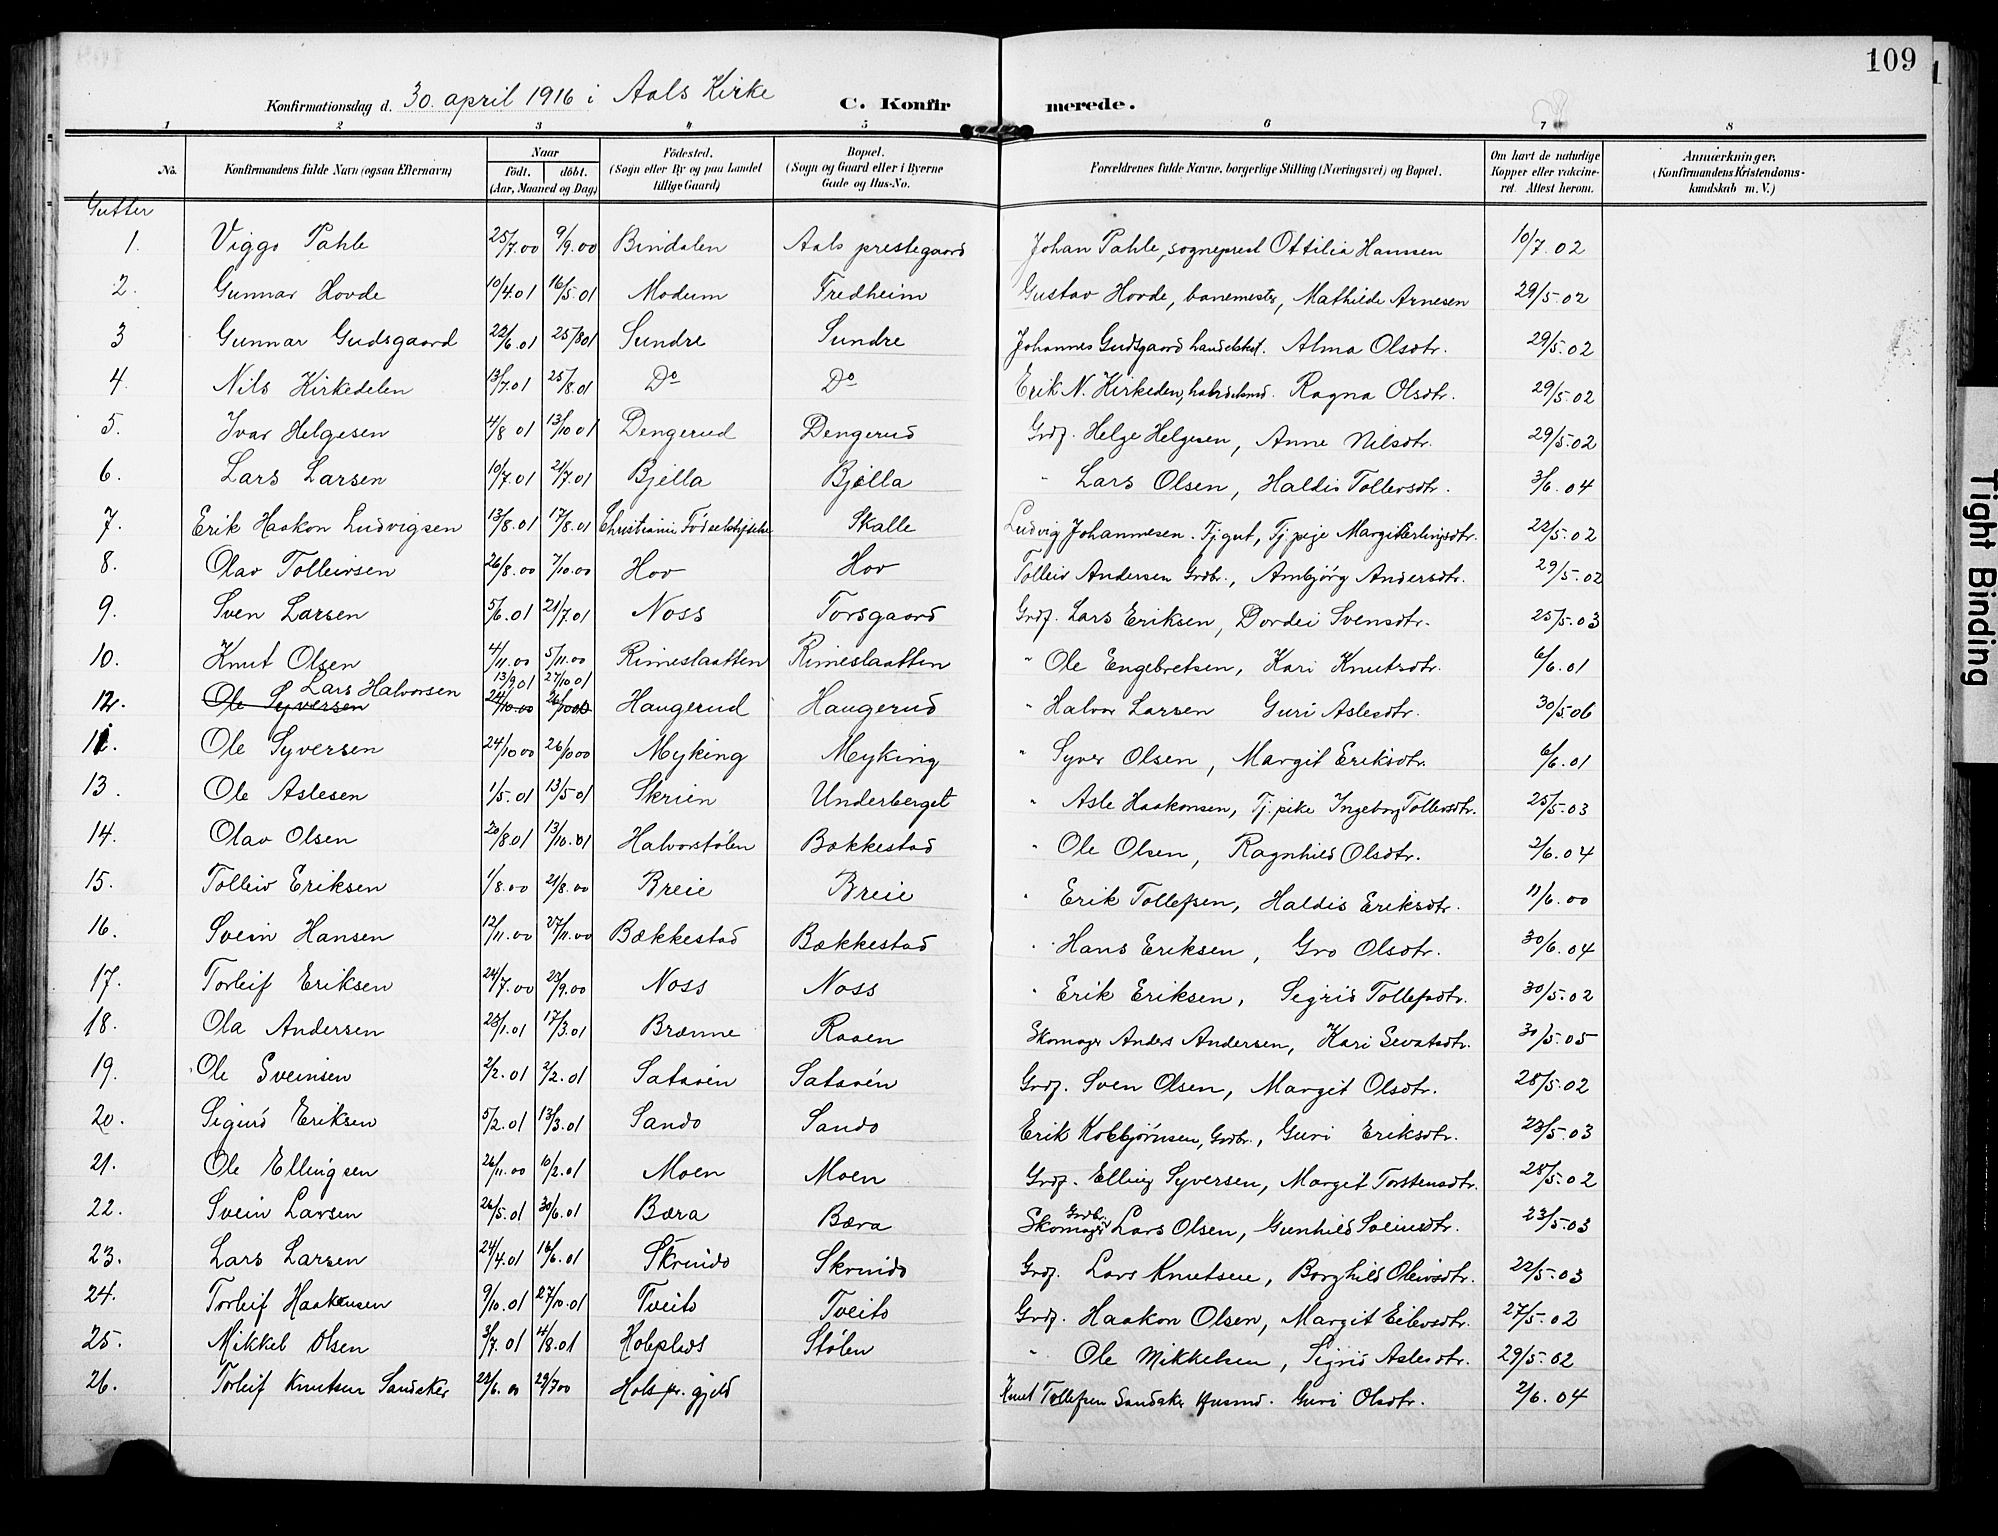 109
Konfirmationsdag d. 30. april 1916 i Aals Kirke C. Konfirmerede.
1 2 3 4 5 6 7 8
No. Konfirmandens fulde Navn (ogsaa Efternavn) Naar født. døbt. (Aar, Maaned og Dag) Fødested. (Sogn eller By og paa Landet tillige Gaard) Bopæl. (Sogn og Gaard eller i Byerne Gade og Hus-No. Forældrenes fulde Navne, borgerlige Stilling (Næringsvei) og Bopæl. Om havt de naturlige Kopper eller vaccineret. Attest herom. Anmærkninger. (Konfirmandens Kristendomskundskab m. V.)
Gutter
1. Viggo Pahle 25/7.00 9/9.00 Bindalen Aals prestegaard Johan Pahle, sogneprest Ottilia Hansen 10/7.02
2. Gunnar Hovde 10/4.01 16/5.01 Modum Fredheim Gustav Hovde, banemester, Mathilde Arnesen 29/5.02
3 Gunnar Gudsgaard 22/6.01 25/8 01 Sundre Sundre Johannes Gudsgaard Alma Olsdtr. 29/5.02
4. Nils Kirkedelen 13/7.01 25/8.01 Do Do Erik N. Ragna Olsdtr. 29/5.02
5. Ivar Helgesen 4/8 01 13/10 01 Dengerud Dengerud Grdf. Helge Helgesen, Anne Nilsdtr. 29/5.02
6. Lars Larsen 10/7.01 21/7.01 Bjella Bjella " Lars Olsen, Haldis Tollevsdtr. 3/6.04
7. Erik Haakon Ludvigsen 13/8.01 17/8.01 Christiania Skalle Ludvig Johannesen. Tj.gut, Tj.pige Margit Erlingsdtr. 22/5.02
8. Olav Tolleivsen 26/8.00 7/10.00 Hov Hov Tolleiv Andersen Grdbr., Ambjörg Andersdtr. 29/5.02
9. Sven Larsen 5/6.01 21/7.01 Noss Torsgaard Grdf. Lars Eriksen, Dordei Svensdtr. 25/5.03
10. Knut Olsen 4/11.00 5/11.00 Rimeslaatten Rimeslaatten " Ole Engebretsen, Kari Knutsdtr. 6/6.01
Lars Halvorsen 13/9 01 27/10 01
12. Ole Syversen 24/10.00 26/10 00 Haugerud Haugerud " Halvor Larsen Guri Aslesdtr. 30/5.06
11. Ole Syversen 24/10 00 26/10 00 Myking Myking " Syver Olsen, Margit Eriksdtr. 6/6.01
13. Ole Aslesen 1/5.01 13/5 01 Skrien Underberget " Asle Haakonsen, Tj.pike Ingeborg Tollevsdtr. 25/5.03
14. Olav Olsen 20/8.01 13/10.01 Halvorstølen Bækkestad " Ole Olsen, Ragnhild Olsdtr. 2/6.04
15. Tolleiv Eriksen 1/8.00 21/8.00 Breie Breie " Erik Tollefsen, Haldis Eriksdtr. 11/6.00
16. Svein Hansen 12/11.00 27/11.00 Bækkestad Bækkestad " Hans Eriksen, Gro Olsdtr. 30/6.04
17. Torleif Eriksen 24/7.00 23/9.00 Noss Noss " Erik Eriksen, Sigrid Tollefsdtr. 30/5.02
18. Ola Andersen 23/1.01 17/3.01 Brænne Raaen Skomager Anders Andersen, Kari Sevatsdtr. 30/5.05
19. Ole Sveinsen 2/2.01 2/2.01 Sataøen Sataøen Grdf. Sven Olsen, Margit Olsdtr. 28/5.02
20. Sigurd Eriksen 5/2.01 13/3.01 Sando Sando Erik Kolbjörnsen, Grdbr., Guri Eriksdtr. 23/5.03
21. Ole Ellingsen 26/11.00 10/2.01 Moen Moen Grdf. Elling Syversen, Margit Torstensdtr. 28/5.02
22. Svein Larsen 26/5.01 30/6.01 Bæra Bæra Skomager Grdbr. Lars Olsen, Gunhild Sveinsdtr. 23/5.03
23. Lars Larsen 24/4.01 16/6.01 Skrindo Skrindo Grdf. Lars Knutsen, Borghild Oleivsdtr. 22/5.03
24. Torleif Haakonsen 9/10.01 27/10.01 Tveito Tveito Grdf. Haakon Olsen, Margit Eilevsdtr. 27/5.02
25. Mikkel Olsen 3/7.01 4/8.01 Holeplads Stölen " Ole Mikkelsen, Sigrid Aslesdtr. 29/5.02
26. Torleif Knutsen Sandaker 22/6.00 29/7 00 Hols pr.gjeld Knut Tollefsen Sandaker Husmd. Guri Olsdtr. 2/6.04
Tight Binding